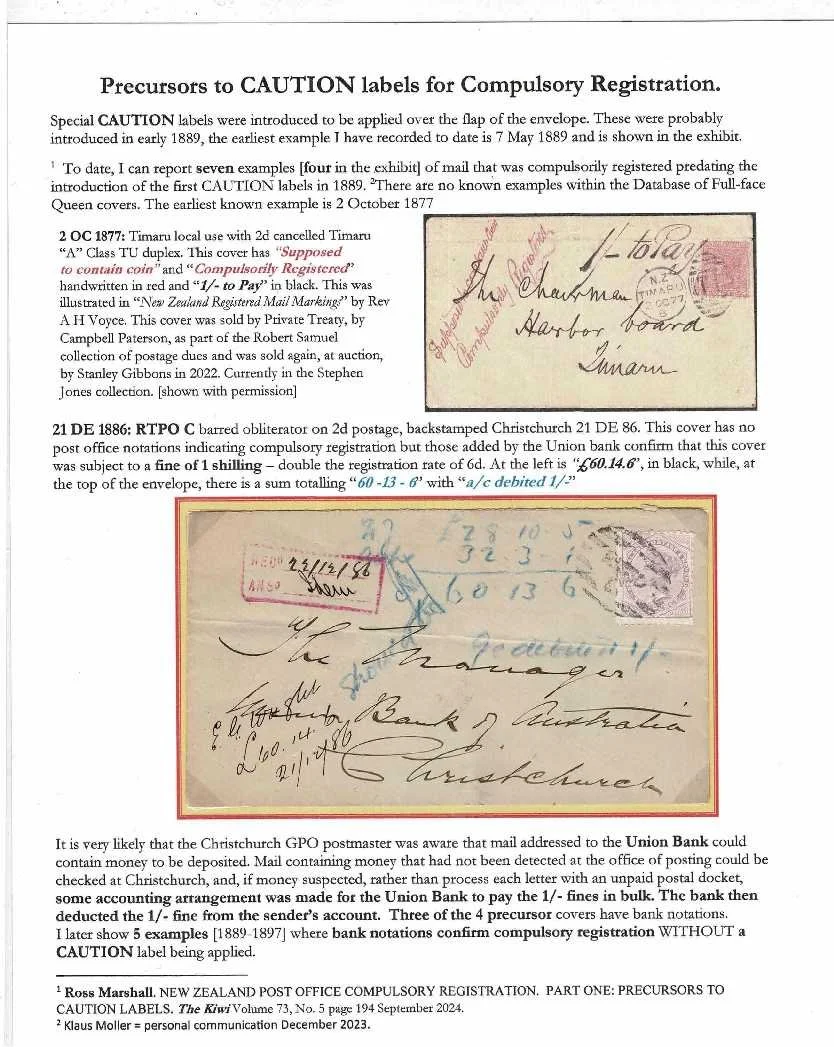 Precursors to CAUTION labels for Compulsory Registration.
Special CAUTION labels were introduced to be applied over the flap of the envelope. These were probably
introduced in early 1889, the earliest example I have recorded to date is 7 May 1889 and is shown in the exhibit.
¹ To date, I can report seven examples [four in the exhibit] of mail that was compulsorily registered predating the
introduction of the first CAUTION labels in 1889. ²There are no known examples within the Database of Full-face
Queen covers. The earliest known example is 2 October 1877
2 OC 1877: Timaru local use with 2d cancelled Timaru
"A" Class TU duplex. This cover has "Supposed
to contain coin" and "Compulsorily Registered"
handwritten in red and "1/- to Pay" in black. This was
illustrated in "New Zealand Registered Mail Marking?" by Rev
A H Voyce. This cover was sold by Private Treaty, by
Campbell Paterson, as part of the Robert Samuel
collection of postage dues and was sold again, at auction,
by Stanley Gibbons in 2022. Currently in the Stephen
Jones collection. [shown with permission]
Supposed to contain coin
Compulsorily Registered
1/- to Pay
N.Z
TIMARU
OC 77
The Chairman
Harbor board
Timaru
21 DE 1886: RTPO C barred obliterator on 2d postage, backstamped Christchurch 21 DE 86. This cover has no
post office notations indicating compulsory registration but those added by the Union bank confirm that this cover
was subject to a fine of 1 shilling – double the registration rate of 6d. At the left is "£60.14.6", in black, while, at
the top of the envelope, there is a sum totalling "60 -13 - 6" with "a/c debited 1/-"
£28 10 5
32 . 3 - 1
60 13 6
RECD 22/12/86
ANSD
a/c debited 1/-
The Manager
Union Bank of Australia
Christchurch
£60.14.6
21/12/86
It is very likely that the Christchurch GPO postmaster was aware that mail addressed to the Union Bank could
contain money to be deposited. Mail containing money that had not been detected at the office of posting could be
checked at Christchurch, and, if money suspected, rather than process each letter with an unpaid postal docket,
some accounting arrangement was made for the Union Bank to pay the 1/- fines in bulk. The bank then
deducted the 1/- fine from the sender's account. Three of the 4 precursor covers have bank notations.
I later show 5 examples [1889-1897] where bank notations confirm compulsory registration WITHOUT a
CAUTION label being applied.
¹ Ross Marshall. NEW ZEALAND POST OFFICE COMPULSORY REGISTRATION. PART ONE: PRECURSORS TO
CAUTION LABELS. The Kiwi Volume 73, No. 5 page 194 September 2024.
² Klaus Moller = personal communication December 2023.